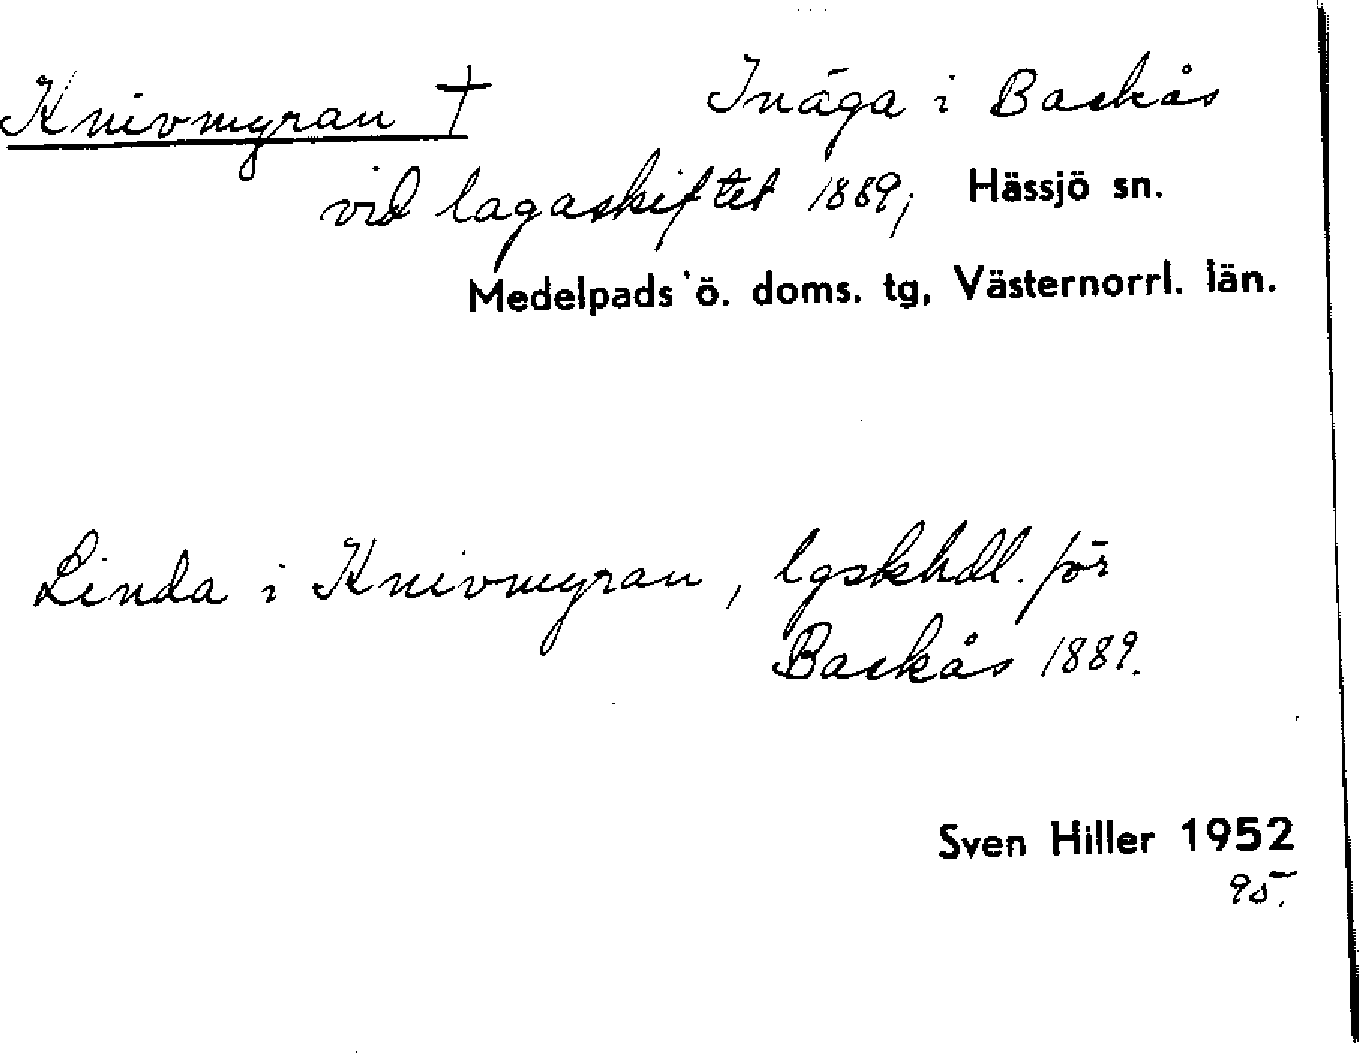 Knivmyran † Inäga i Backås
vid lagaskiftet 1889; Hässjö sn.
Medelpads ö. doms. tg, Västernorrl. län.
Linda i Knivmyran, lgskhdl. för
Backås 1889.
Sven Hiller 1952
95.